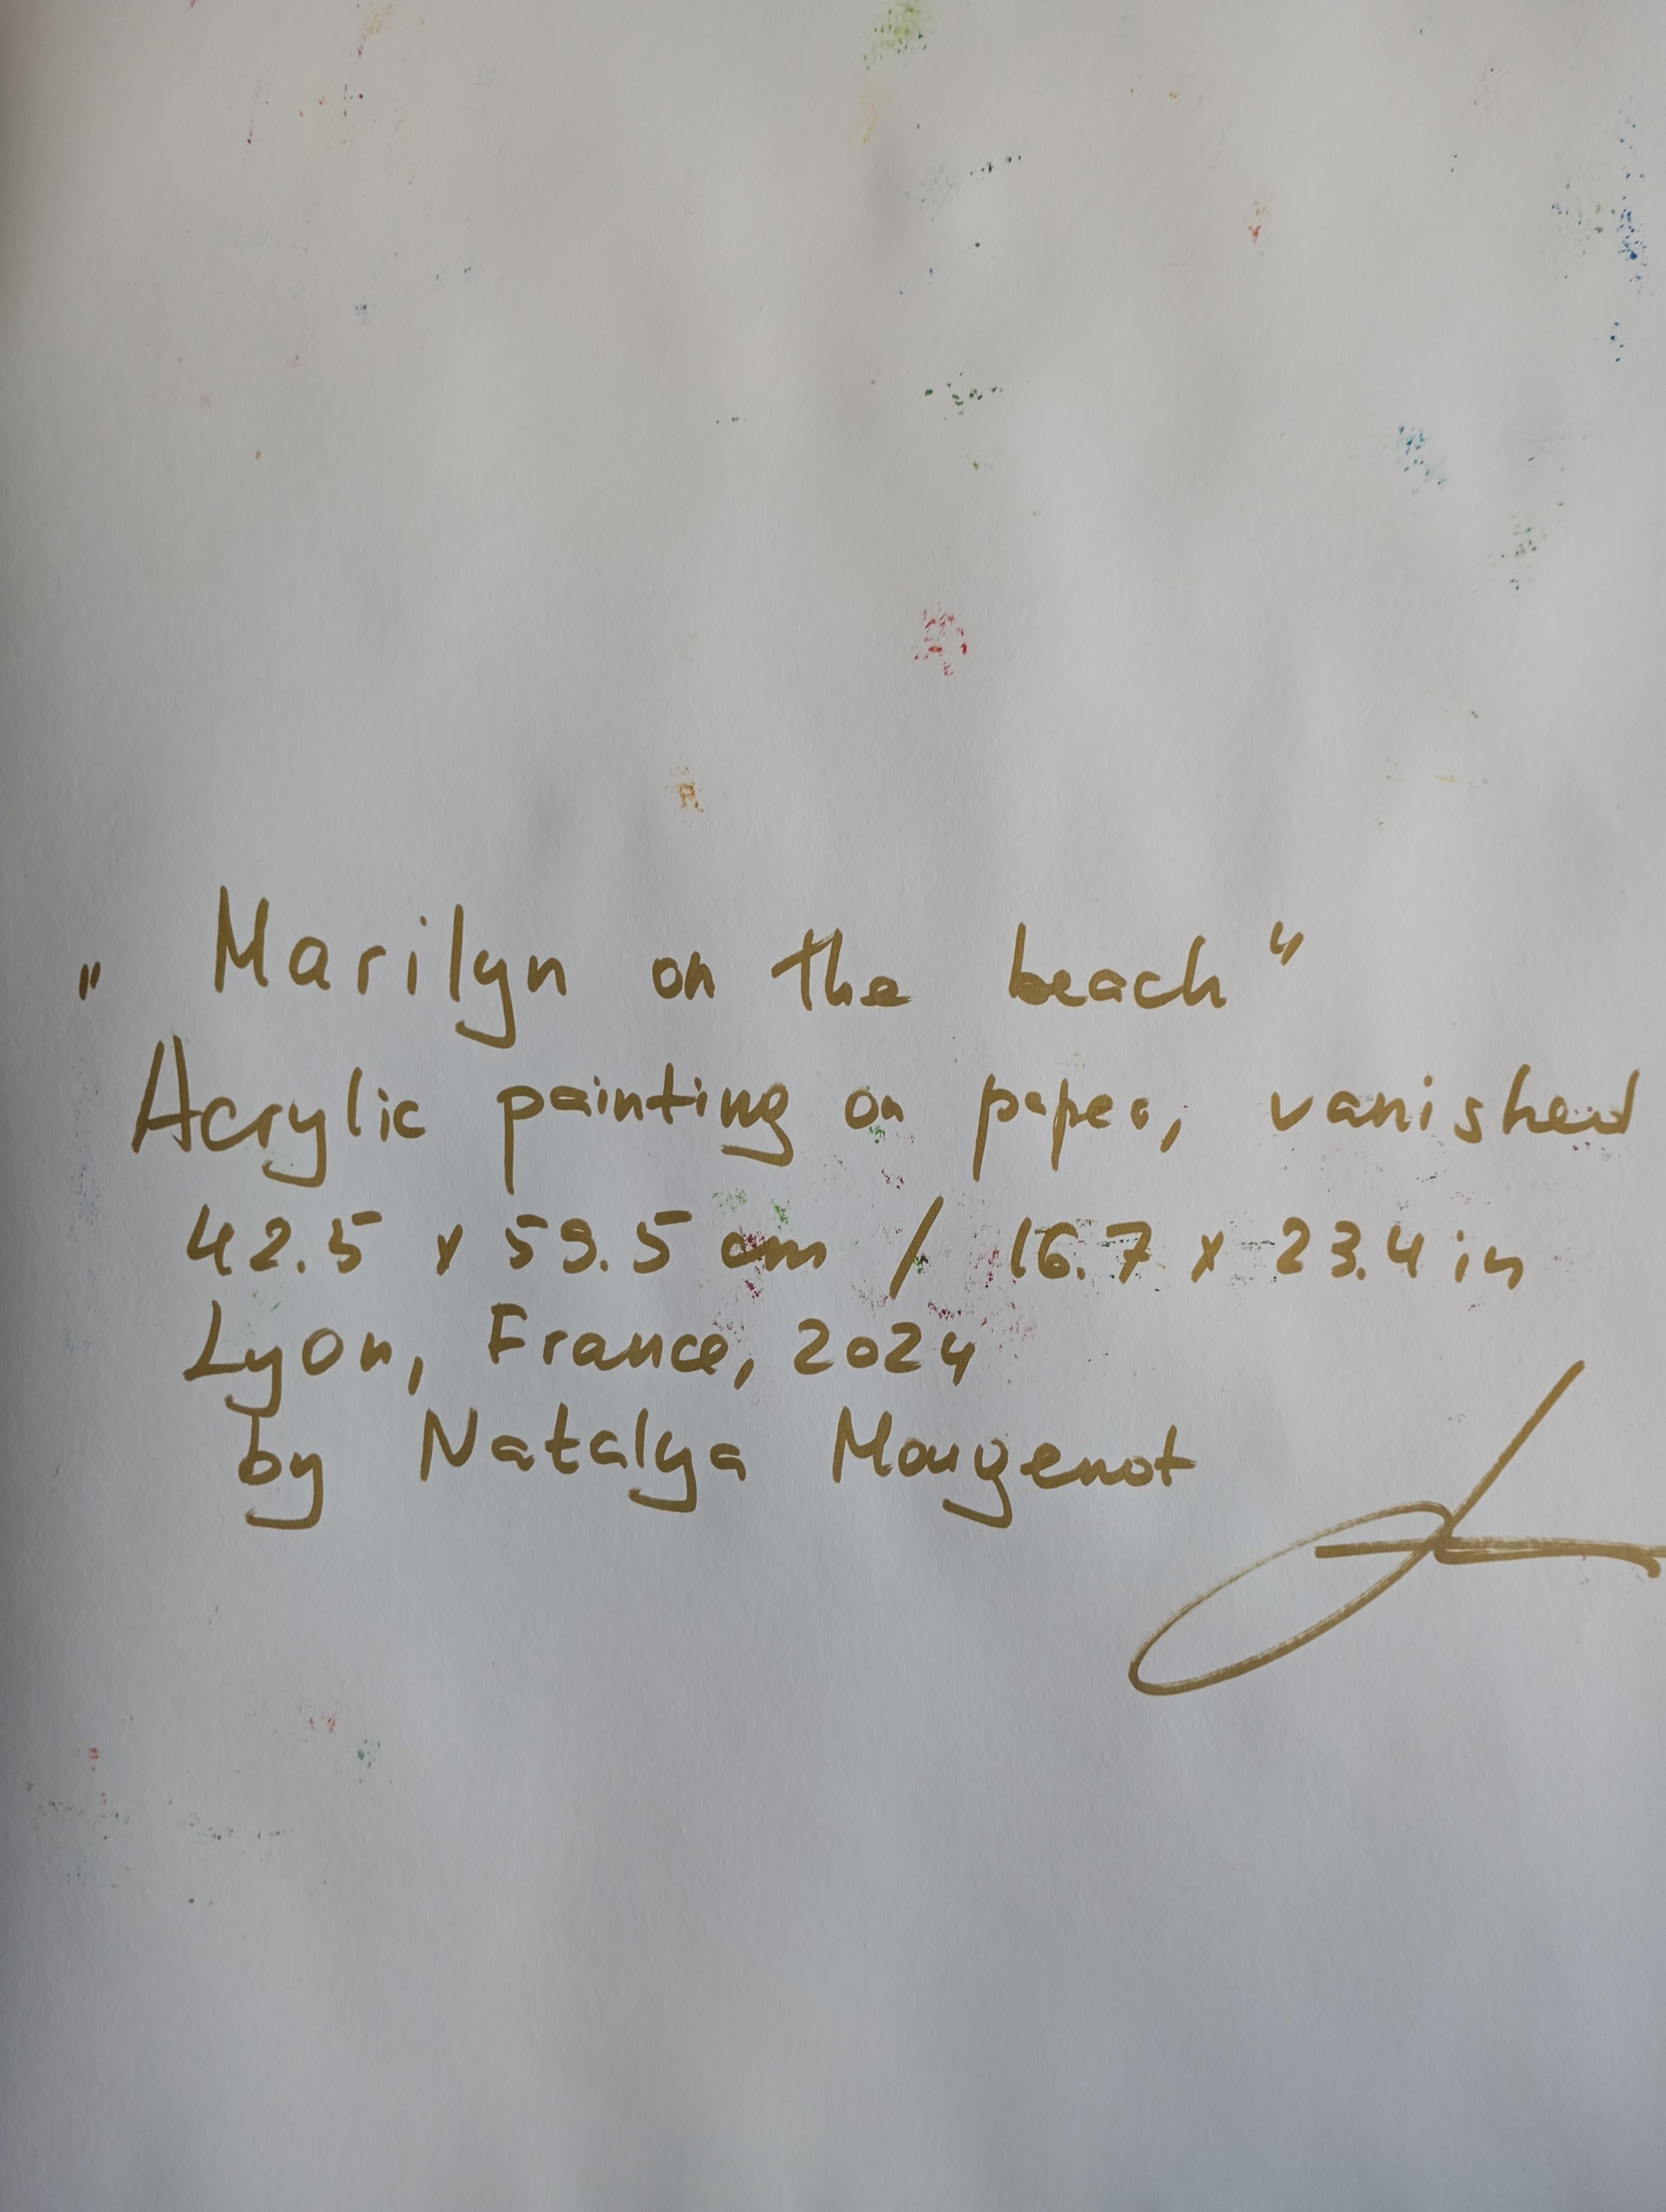 „ Marilyn on the beach“
Acrylic painting on paper, vanished
42.5 x 59.5 cm / 16.7 x 23.4 in
Lyon, France, 2024
by Natalya Mougenot